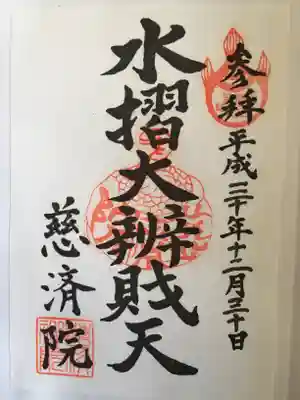 参拜
平成三十年十二月三十日
水摺大辨財天
慈済院